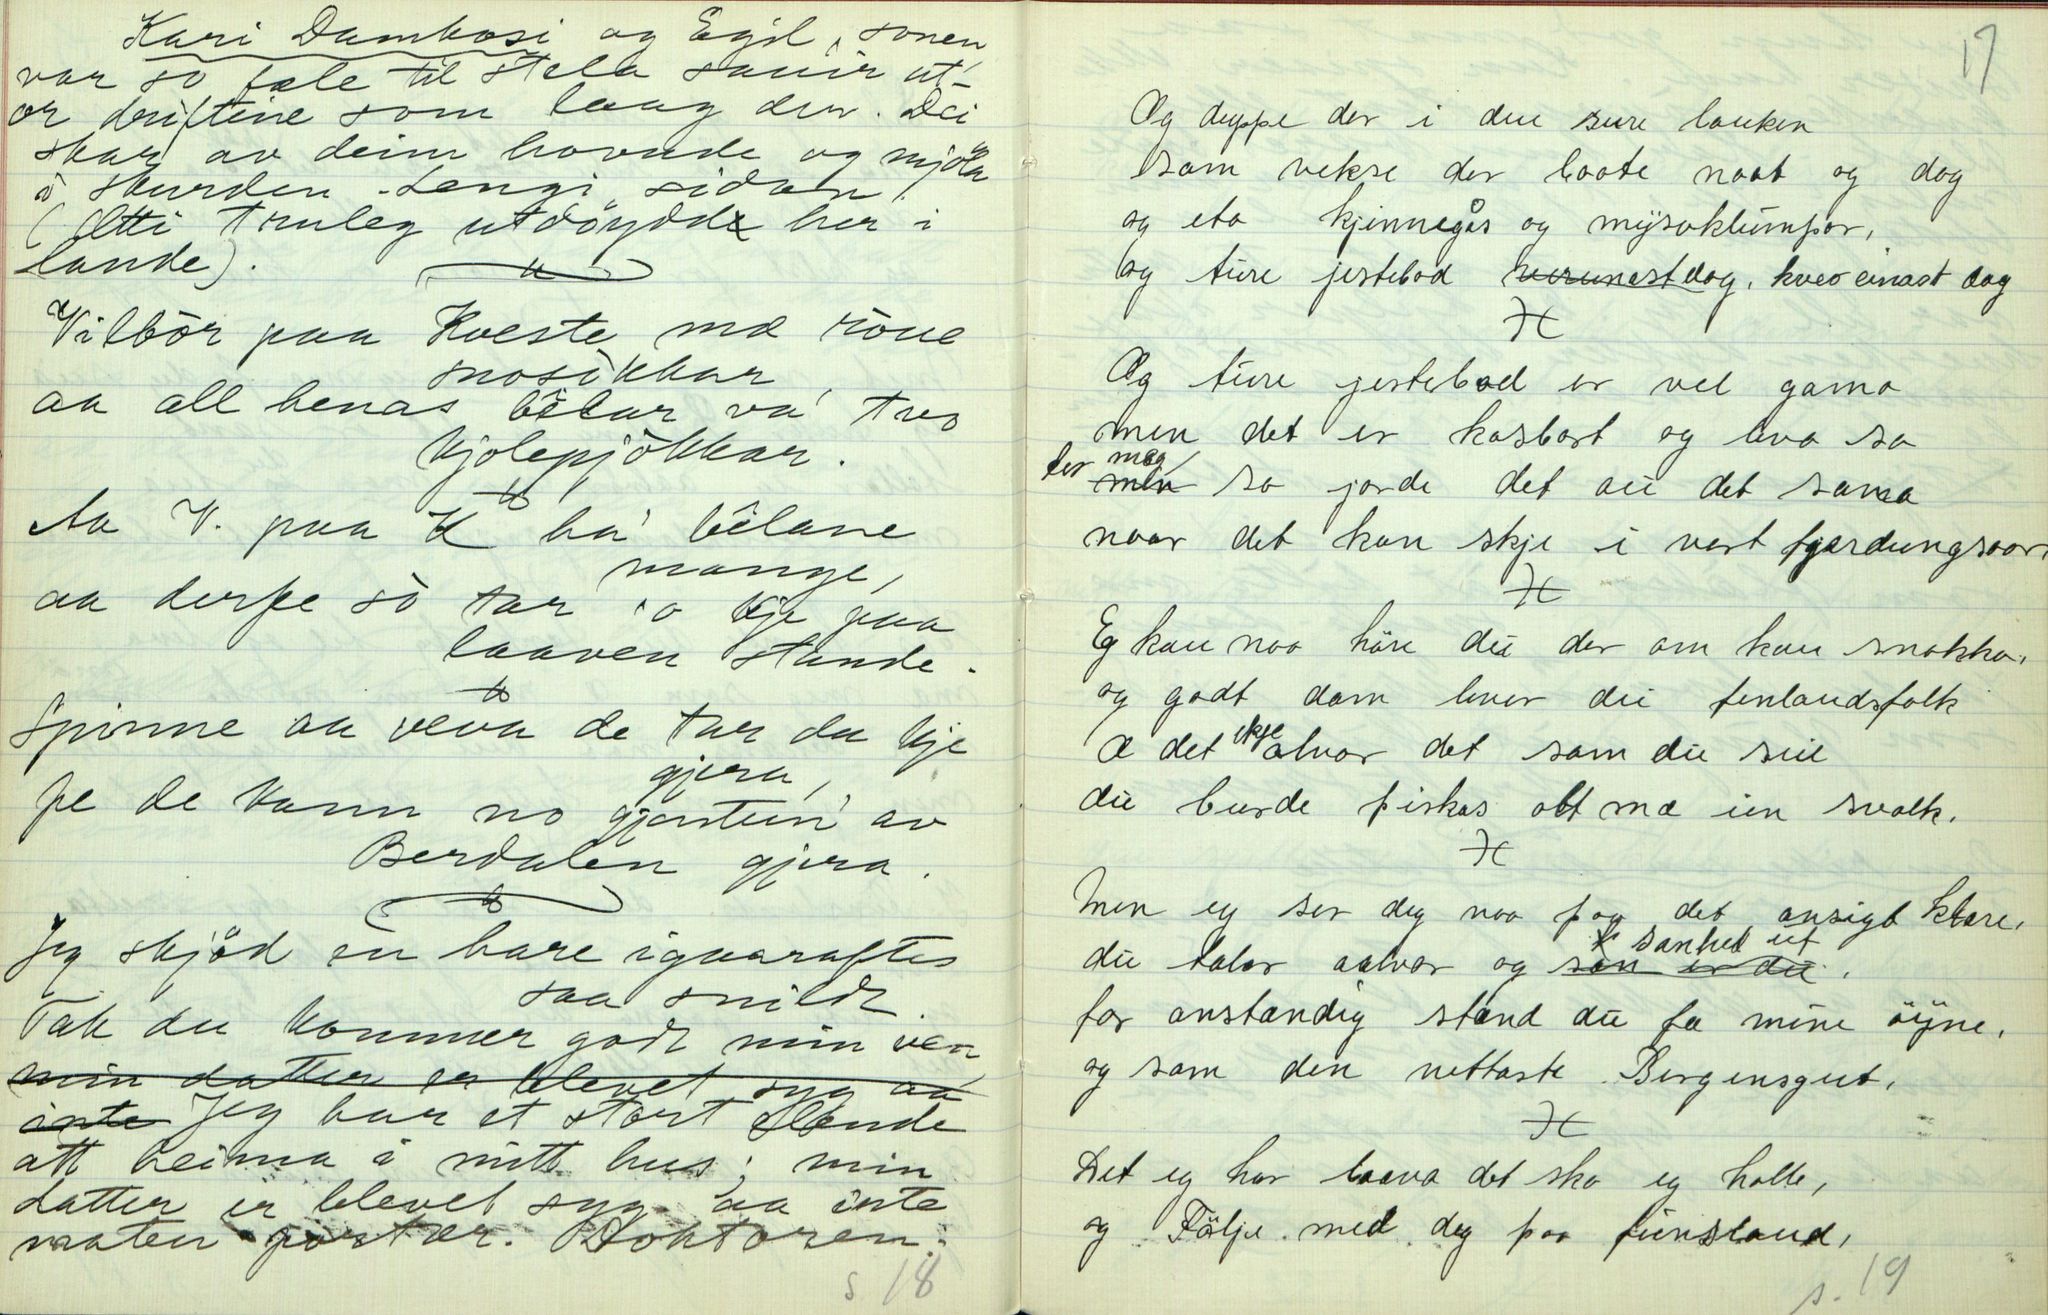 Kari Dambosi og Egil, sonen
var so fæle til stela sauir ut-
or driftine som laag der. Dei
skar av deim hovude og mjöla
i skurden. Lengi sidan.
(Ætti truleg utdöydde her i
lande).
Vilbör paa Kveste mæ röue
snosikkar
aa all henas bêlar va' tvo
kjolepjökkar.
Aa V. paa K ha' bêlane
mange,
aa derfe so tar 'o kje paa
laaven stande.
Spinne aa veva de tar du kje
gjera,
fe de kann no gjenteun' av
Berdalen gjera.
Jeg skjöd en hare igaaraftes
saa snildt
Tak du kommer godt min ven
min datter er blevet syg aa
inte Jeg har et stort elende
att heima i mitt hus; min
datter er blevet syg aa inte
maten goster. Doktoren:
s 18
17
Og duppe der i den sure lauken
som vekse der baate naat og dag
og eta kjinnegås og mysoklumpar,
og ture jestebod verunest dag, kveo einast dag
Og ture jestebod er vel gama
men det er kosbart og leva so
ter mæg
men so jorde det au det sama
naar det kan skje i vart fjerdungsaar,
Eg kan naa höre du der om kan snakka,
og godt dom lever dii finlandsfolk
Æ det ikje alvor det som du seie
du burde piskas alt mæ ien svolk.
Men eg ser deg naa paa det ansigt klare,
sanhet ut
du talar aalvor og son er du,
for anstændig stænd du fe mine öyne,
og som den nettaste Bergensgut,
Det eg har laava det ska eg halle,
og Följe med deg paa finsland,
s. 19